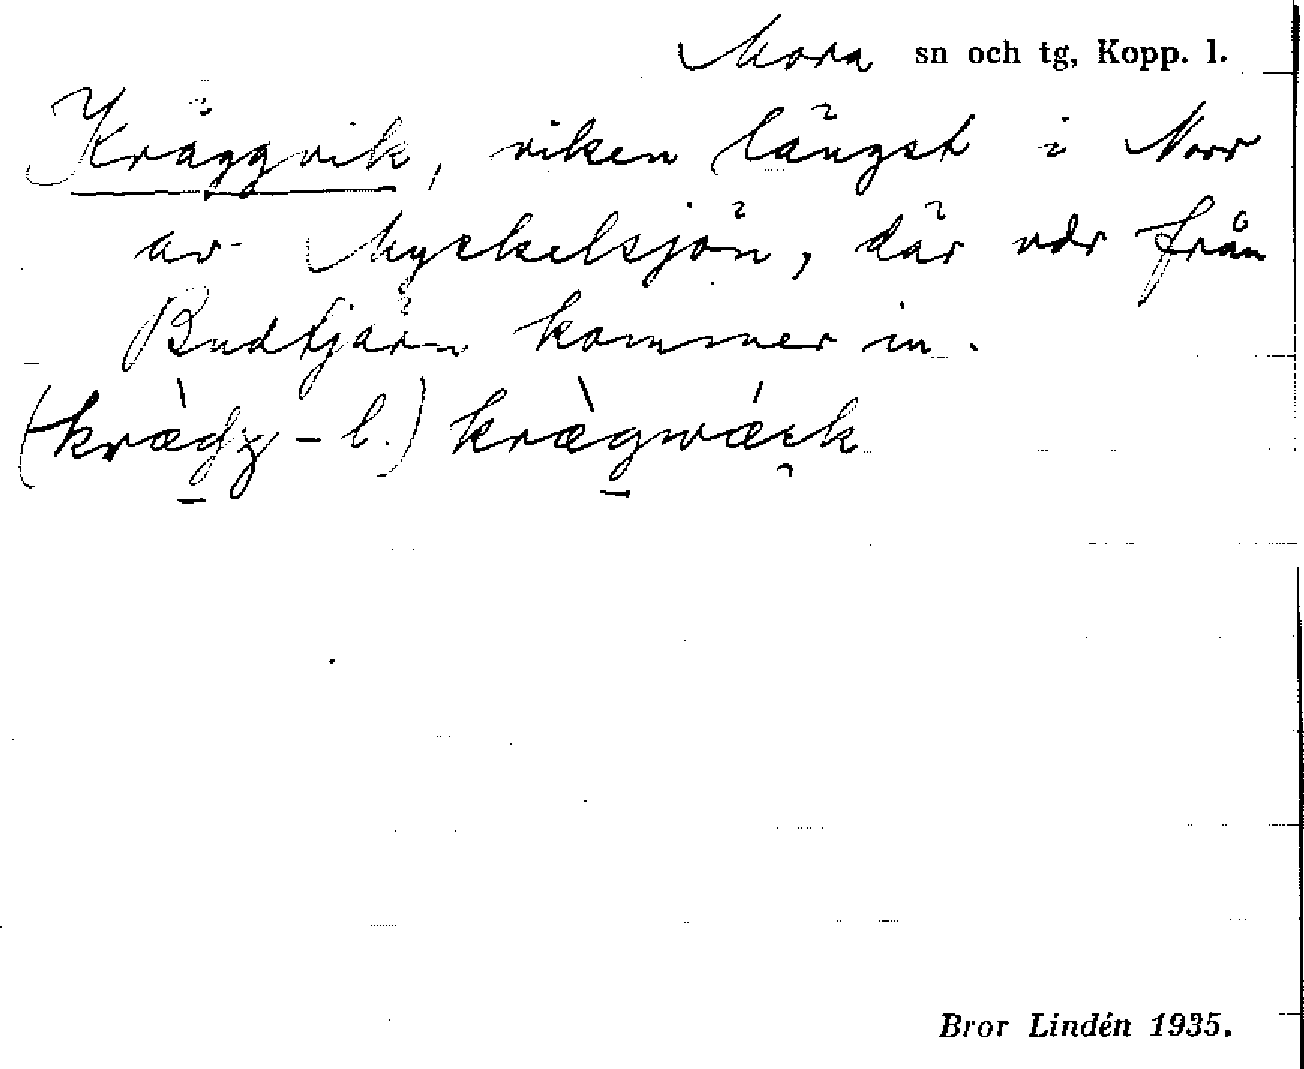 Mora sn och tg, Kopp. l.
Kräggvik, viken längst i Norr
av Myckelsjön, där vdr från
Budtjärn kommer in.
(kræ̀gg – l.) krægwæik
Bror Lindén 1935.